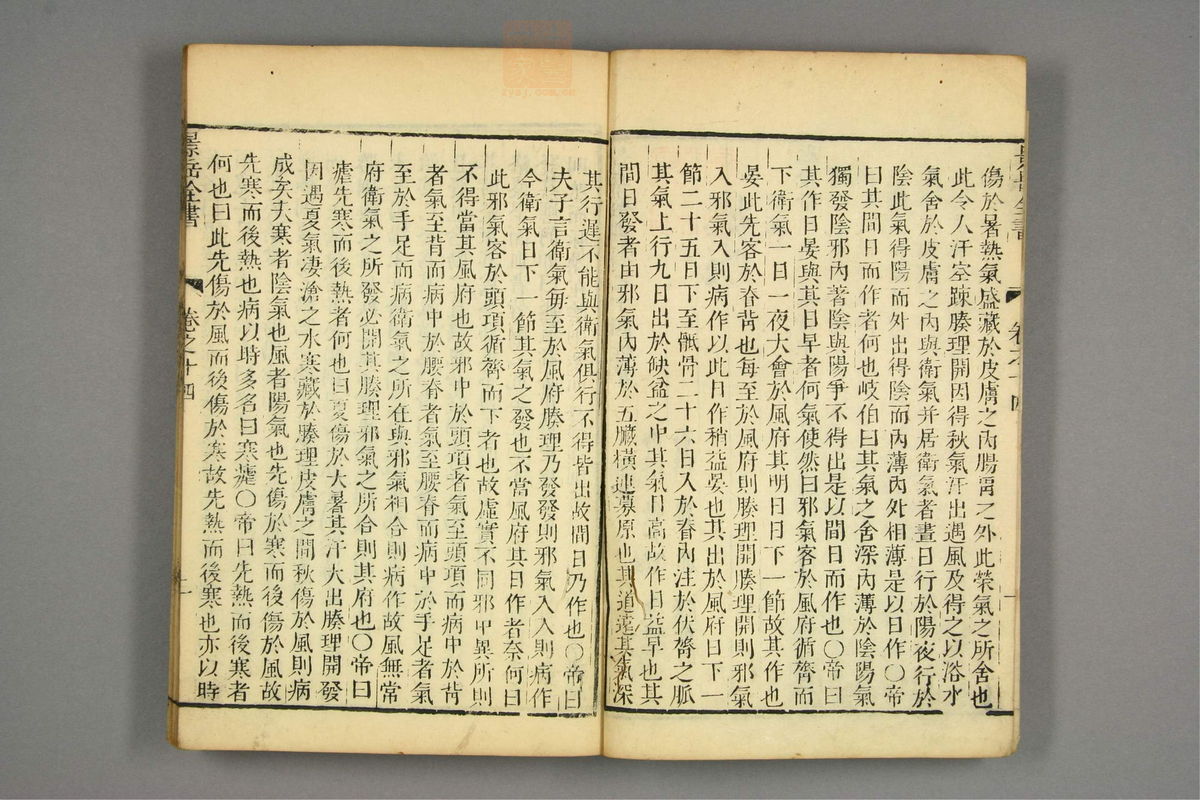 傷於暑熱氣盛藏於皮膚之內腸胃之外此榮氣之所舍也
此令人汗空踈腠理開因得秋氣汗出遇風及得之以浴水
氣舍於皮膚之內與衛氣并居衛氣者晝日行於陽夜行於
陰此氣得陽而外出得陰而內薄內外相薄是以日作○帝
曰其間日而作者何也岐伯曰其氣之舍深內薄於陰陽氣
獨發陰邪內著陰與陽爭不得出是以間日而作也○帝曰
其作日晏與其日早者何氣使然曰邪氣客於風府循膂而
下衛氣一日一夜大會於風府其明日日下一節故其作也
晏此先客於脊背也每至於風府則腠理開腠理開則邪氣
入邪氣入則病作以此日作稍益晏也其出於風府日下一
節二十五日下至骶骨二十六日入於脊內注於伏膂之脈
其氣上行九日出於缺盆之中其氣日高故作日益早也其
間日發者由邪氣內薄於五臟橫連募原也其道遠其氣深
其行遲不能與衛氣俱行不得皆出故間日乃作也○帝曰
夫子言衛氣每至於風府腠理乃發發則邪氣入入則病作
今衛氣日下一節其氣之發也不當風府其日作者奈何曰
此邪氣客於頭項循膂而下者也故虛實不同邪中異所則
不得當其風府也故邪中於頭項者氣至頭項而病中於背
者氣至背而病中於腰脊者氣至腰脊而病中於手足者氣
至於手足而病衛氣之所在與邪氣相合則病作故風無常
府衛氣之所發必開其腠理邪氣之所合則其府也○帝曰
瘧先寒而後熱者何也曰夏傷於大暑其汗大出腠理開發
因遇夏氣凄滄之水寒藏於腠理皮膚之間秋傷於風則病
成矣夫寒者陰氣也風者陽氣也先傷於寒而後傷於風故
先寒而後熱也病以時多名曰寒瘧○帝曰先熱而後寒者
何也曰此先傷於風而後傷於寒故先熱而後寒也亦以時
景岳全書
卷之十四